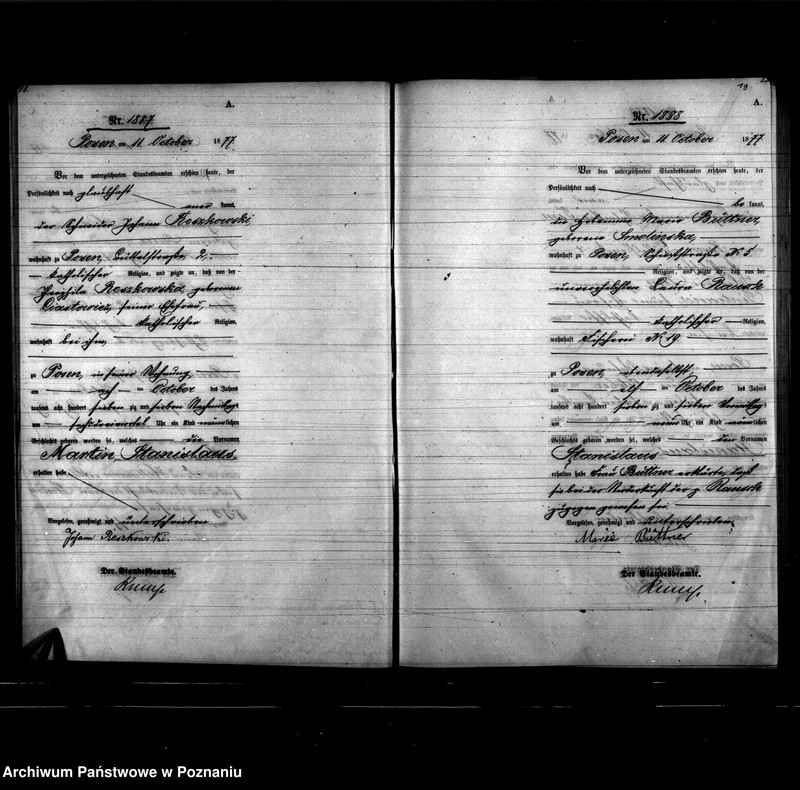 A.
Nr. 1887
Posen am 11 October 1877
Vor dem unterzeichneten Standesbeamten erschien heute, der
Persönlichkeit nach glaubhaft
kannt,
der Schneider Johann Roszkowski
wohnhaft zu Posen, 2,
katholischer Religion, und zeigte an, daß von der
Roszkowska, geborenen
seiner Ehefrau,
katholischer Religion,
wohnhaft bei ihm,
zu Posen, in seiner Wohnung,
am October des Jahres
tausend acht hundert sieben zig und sieben Nachmittags
um Uhr ein Kind männlichen
Geschlechts geboren worden sei, welches die Vornamen
Martin, Stanislaus
erhalten habe
Vorgelesen, genehmigt und unterschrieben
Johann Roszkowski.
Der Standesbeamte.
19
A.
Nr. 1888
Posen am 11 October 1877
Vor dem unterzeichneten Standesbeamten erschien heute, der
Persönlichkeit nach
be kannt,
die Hebamme Marie Büttner,
geborene Smolinska,
wohnhaft zu Posen, No 5
Religion, und zeigte an, daß von der
unverehelichten
katholischer Religion,
wohnhaft Fischerei No 19
zu Posen, ebendaselbst,
am elf October des Jahres
tausend acht hundert sieben zig und sieben Vormittags
um neun Uhr ein Kind männlichen
Geschlechts geboren worden sei, welches den Vornamen
Stanislaus
erhalten habe Frau Büttner erklärte, daß
sie bei der Niederkunft der
zugegen gewesen sei
Vorgelesen, genehmigt und unterschrieben
Marie Büttner
Der Standesbeamte.
Archiwum Państwowe w Poznaniu